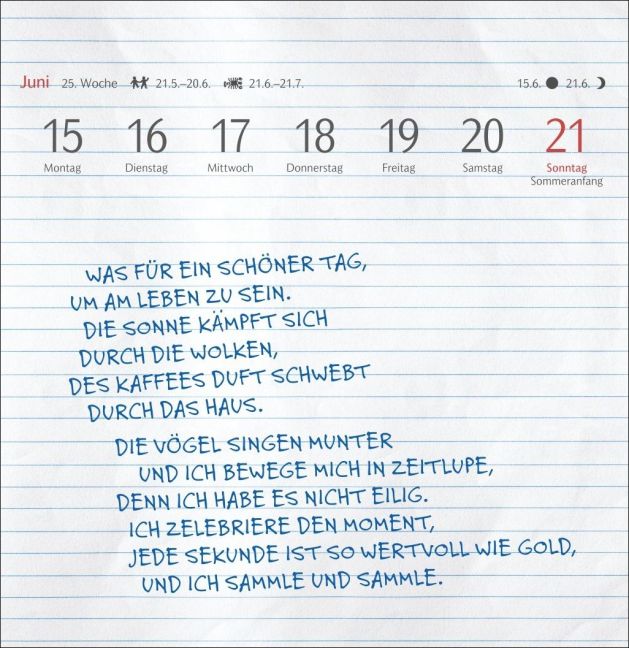 Juni 25. Woche 21.5.–20.6. 21.6.–21.7. 15.6. 21.6.
15 16 17 18 19 20 21
Montag Dienstag Mittwoch Donnerstag Freitag Samstag Sonntag
Sommeranfang
WAS FÜR EIN SCHÖNER TAG,
UM AM LEBEN ZU SEIN.
DIE SONNE KÄMPFT SICH
DURCH DIE WOLKEN,
DES KAFFEES DUFT SCHWEBT
DURCH DAS HAUS.
DIE VÖGEL SINGEN MUNTER
UND ICH BEWEGE MICH IN ZEITLUPE,
DENN ICH HABE ES NICHT EILIG.
ICH ZELEBRIERE DEN MOMENT,
JEDE SEKUNDE IST SO WERTVOLL WIE GOLD,
UND ICH SAMMLE UND SAMMLE.